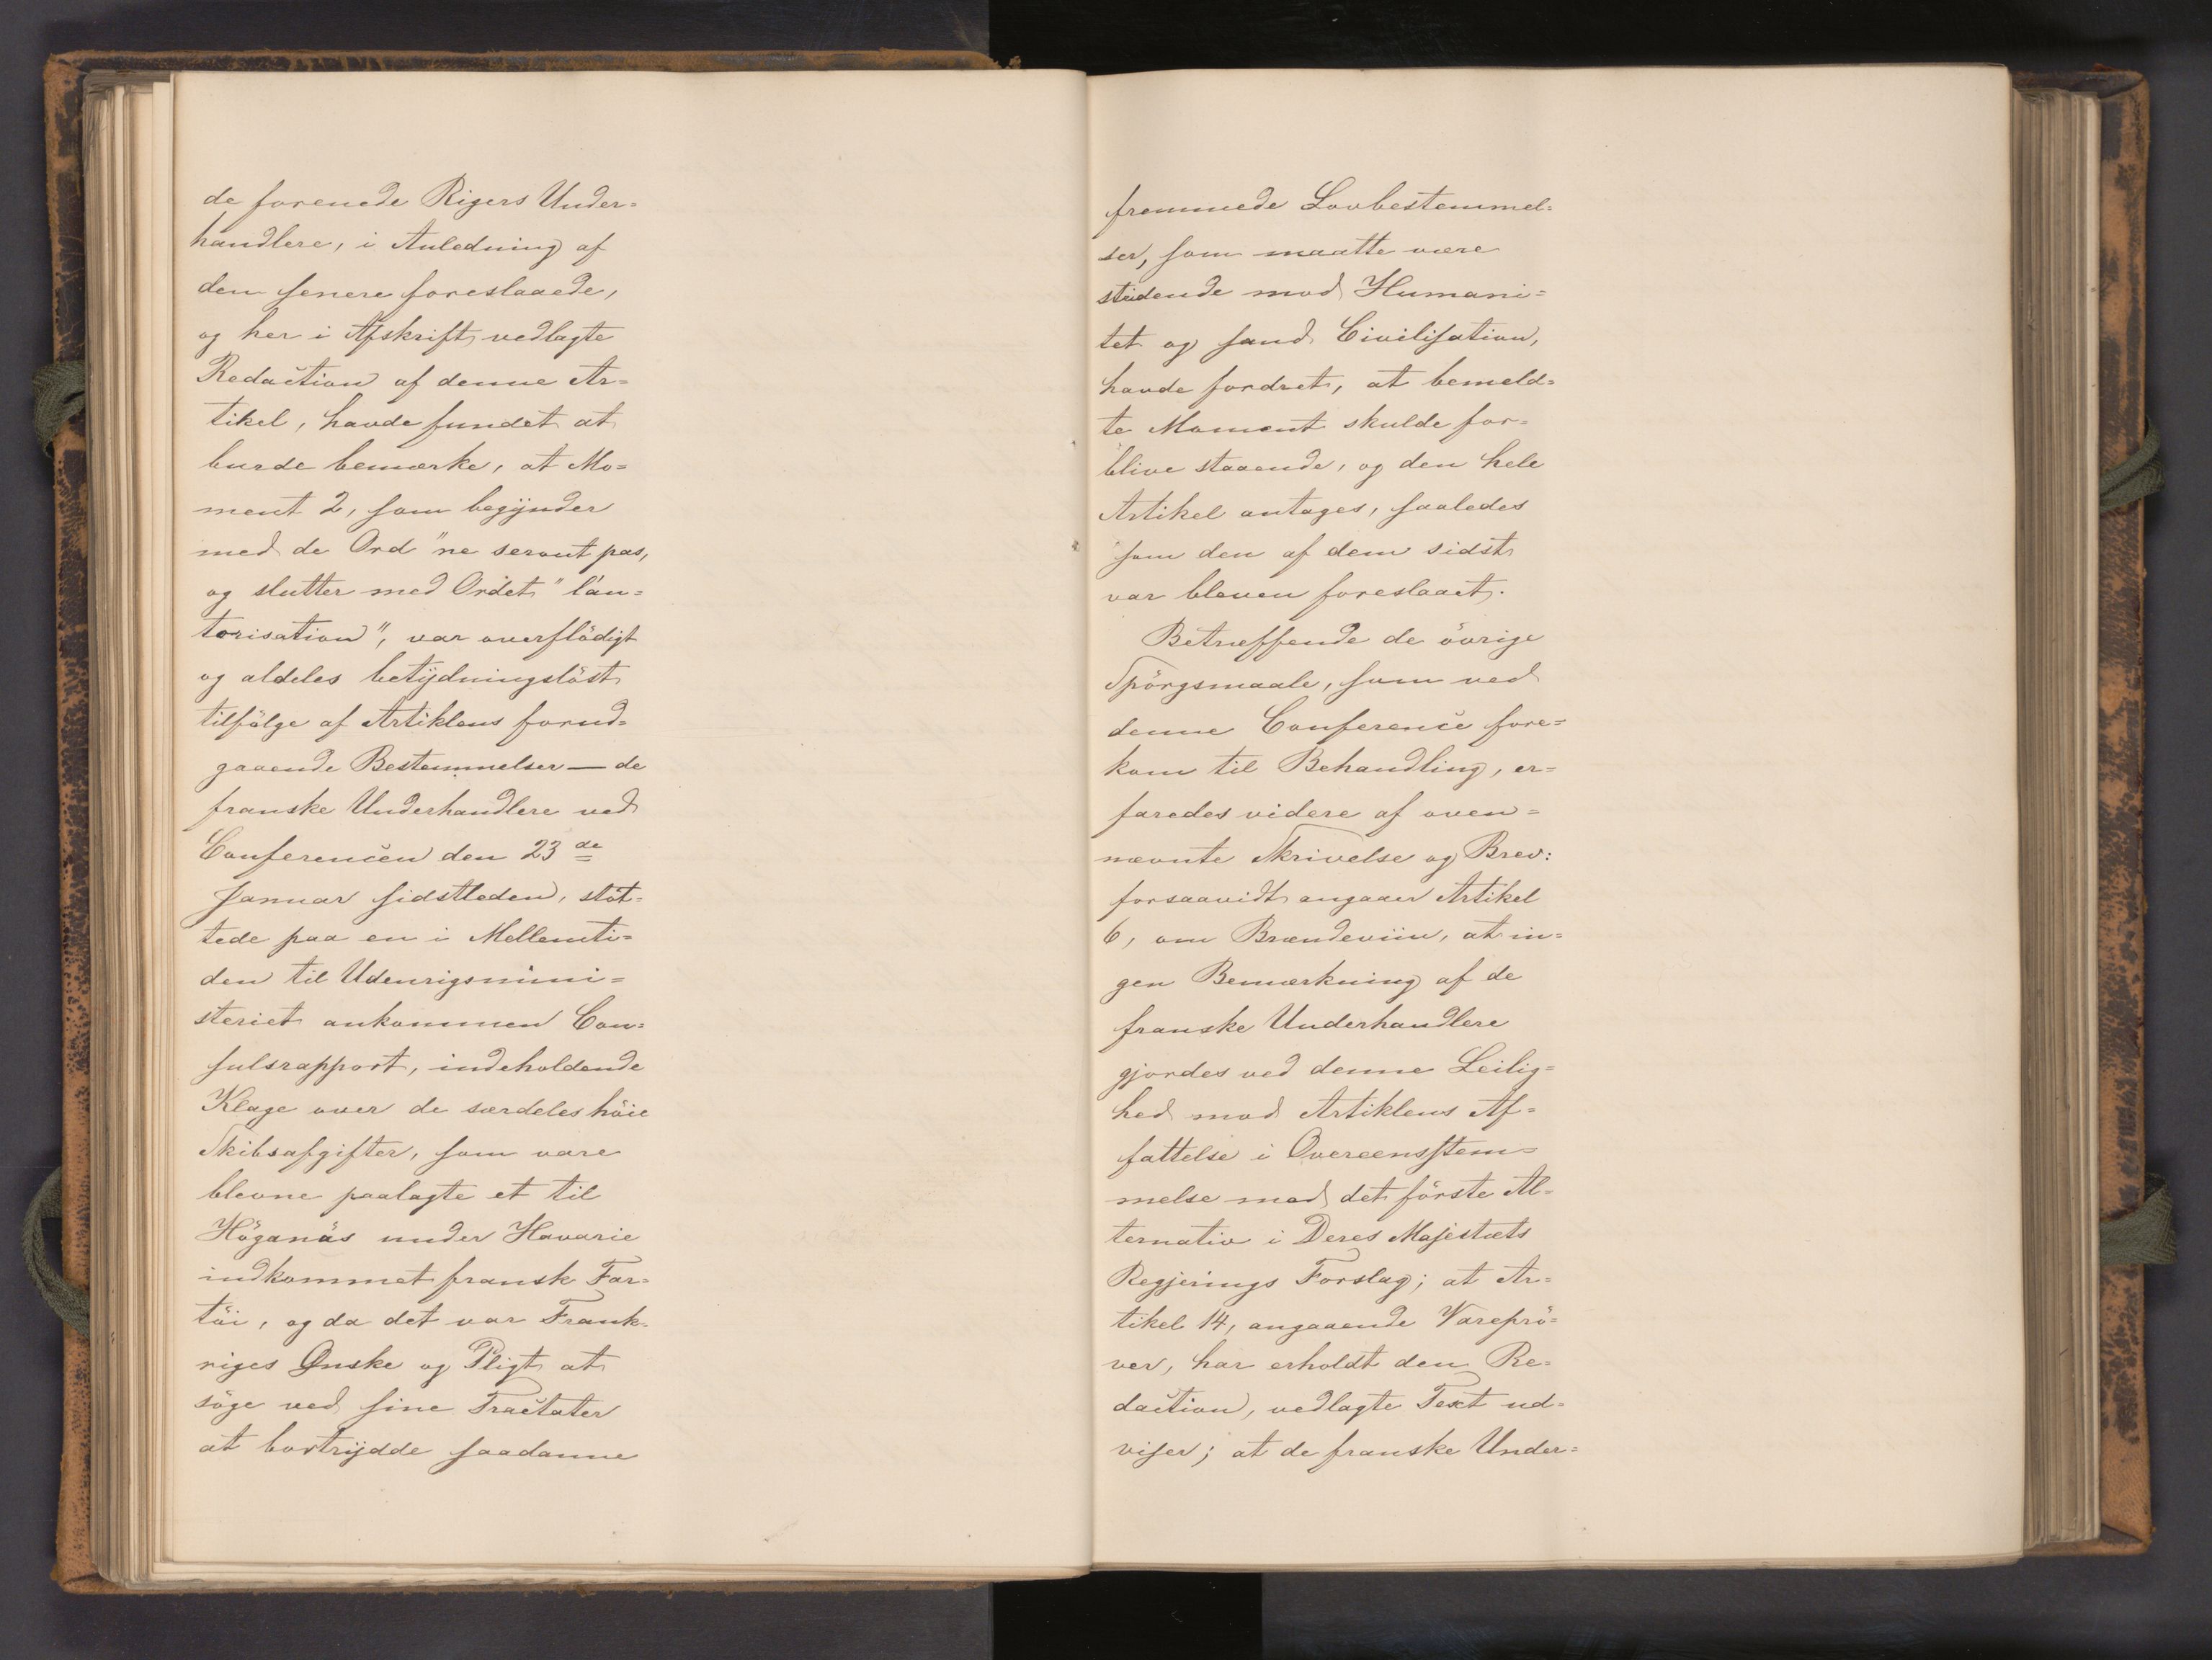 de forenede Rigers Under=
handlere, i Anledning af
den senere foreslaaede,
og her i Afskrift vedlagte
Redaction af denne Ar=
tikel, havde fundet at
burde bemærke, at Mo=
ment 2, som begÿnder
med de Ord "ne seront pas,
og slutter med Ordet "l'au=
torisation", var overflödigt
og aldeles betÿdningslöst
tilfölge af Artiklens forud=
gaaende Bestemmelser — de
franske Underhandlere ved
Conferencen den 23de
Januar sidstleden, stöt=
tede paa en i Mellemti=
den til Udenrigsmini=
steriet ankommen Con=
sulsrapport, indeholdende
Klage over de særdeles höie
Skibsafgifter, som vare
blevne paalagte et til
Höganäs under Havarie
indkommet fransk Far=
töi, og da det var Frank=
riges Ønske og Pligt at
söge ved sine Tractater
at bortrÿdde saadanne
fremmede Lovbestemmel=
ser, som maatte være
stridende mod Humani=
tet og sand Civilisation,
havde fordret, at bemeld=
te Moment skulde for=
blive staaende, og den hele
Artikel antages, saaledes
som den af dem sidst
var bleven foreslaaet.
Betræffende de övrige
Spörgsmaale, som ved
denne Conference fore=
kom til Behandling, er=
faredes videre af oven=
nævnte Skrivelse og Brev:
forsaavidt angaaer Artikel
6, om Brændeviin, at in=
gen Bemærkning af de
franske Underhandlere
gjordes ved denne Leilig=
hed mod Artiklens Af=
fattelse i Overeensstem=
melse med det förste Al=
ternativ i Deres Majestæts
Regjerings Forslag; at Ar=
tikel 14, angaaende Vareprö=
ver, har erholdt den Re=
daction, vedlagte Text ud=
viser; at de franske Under=